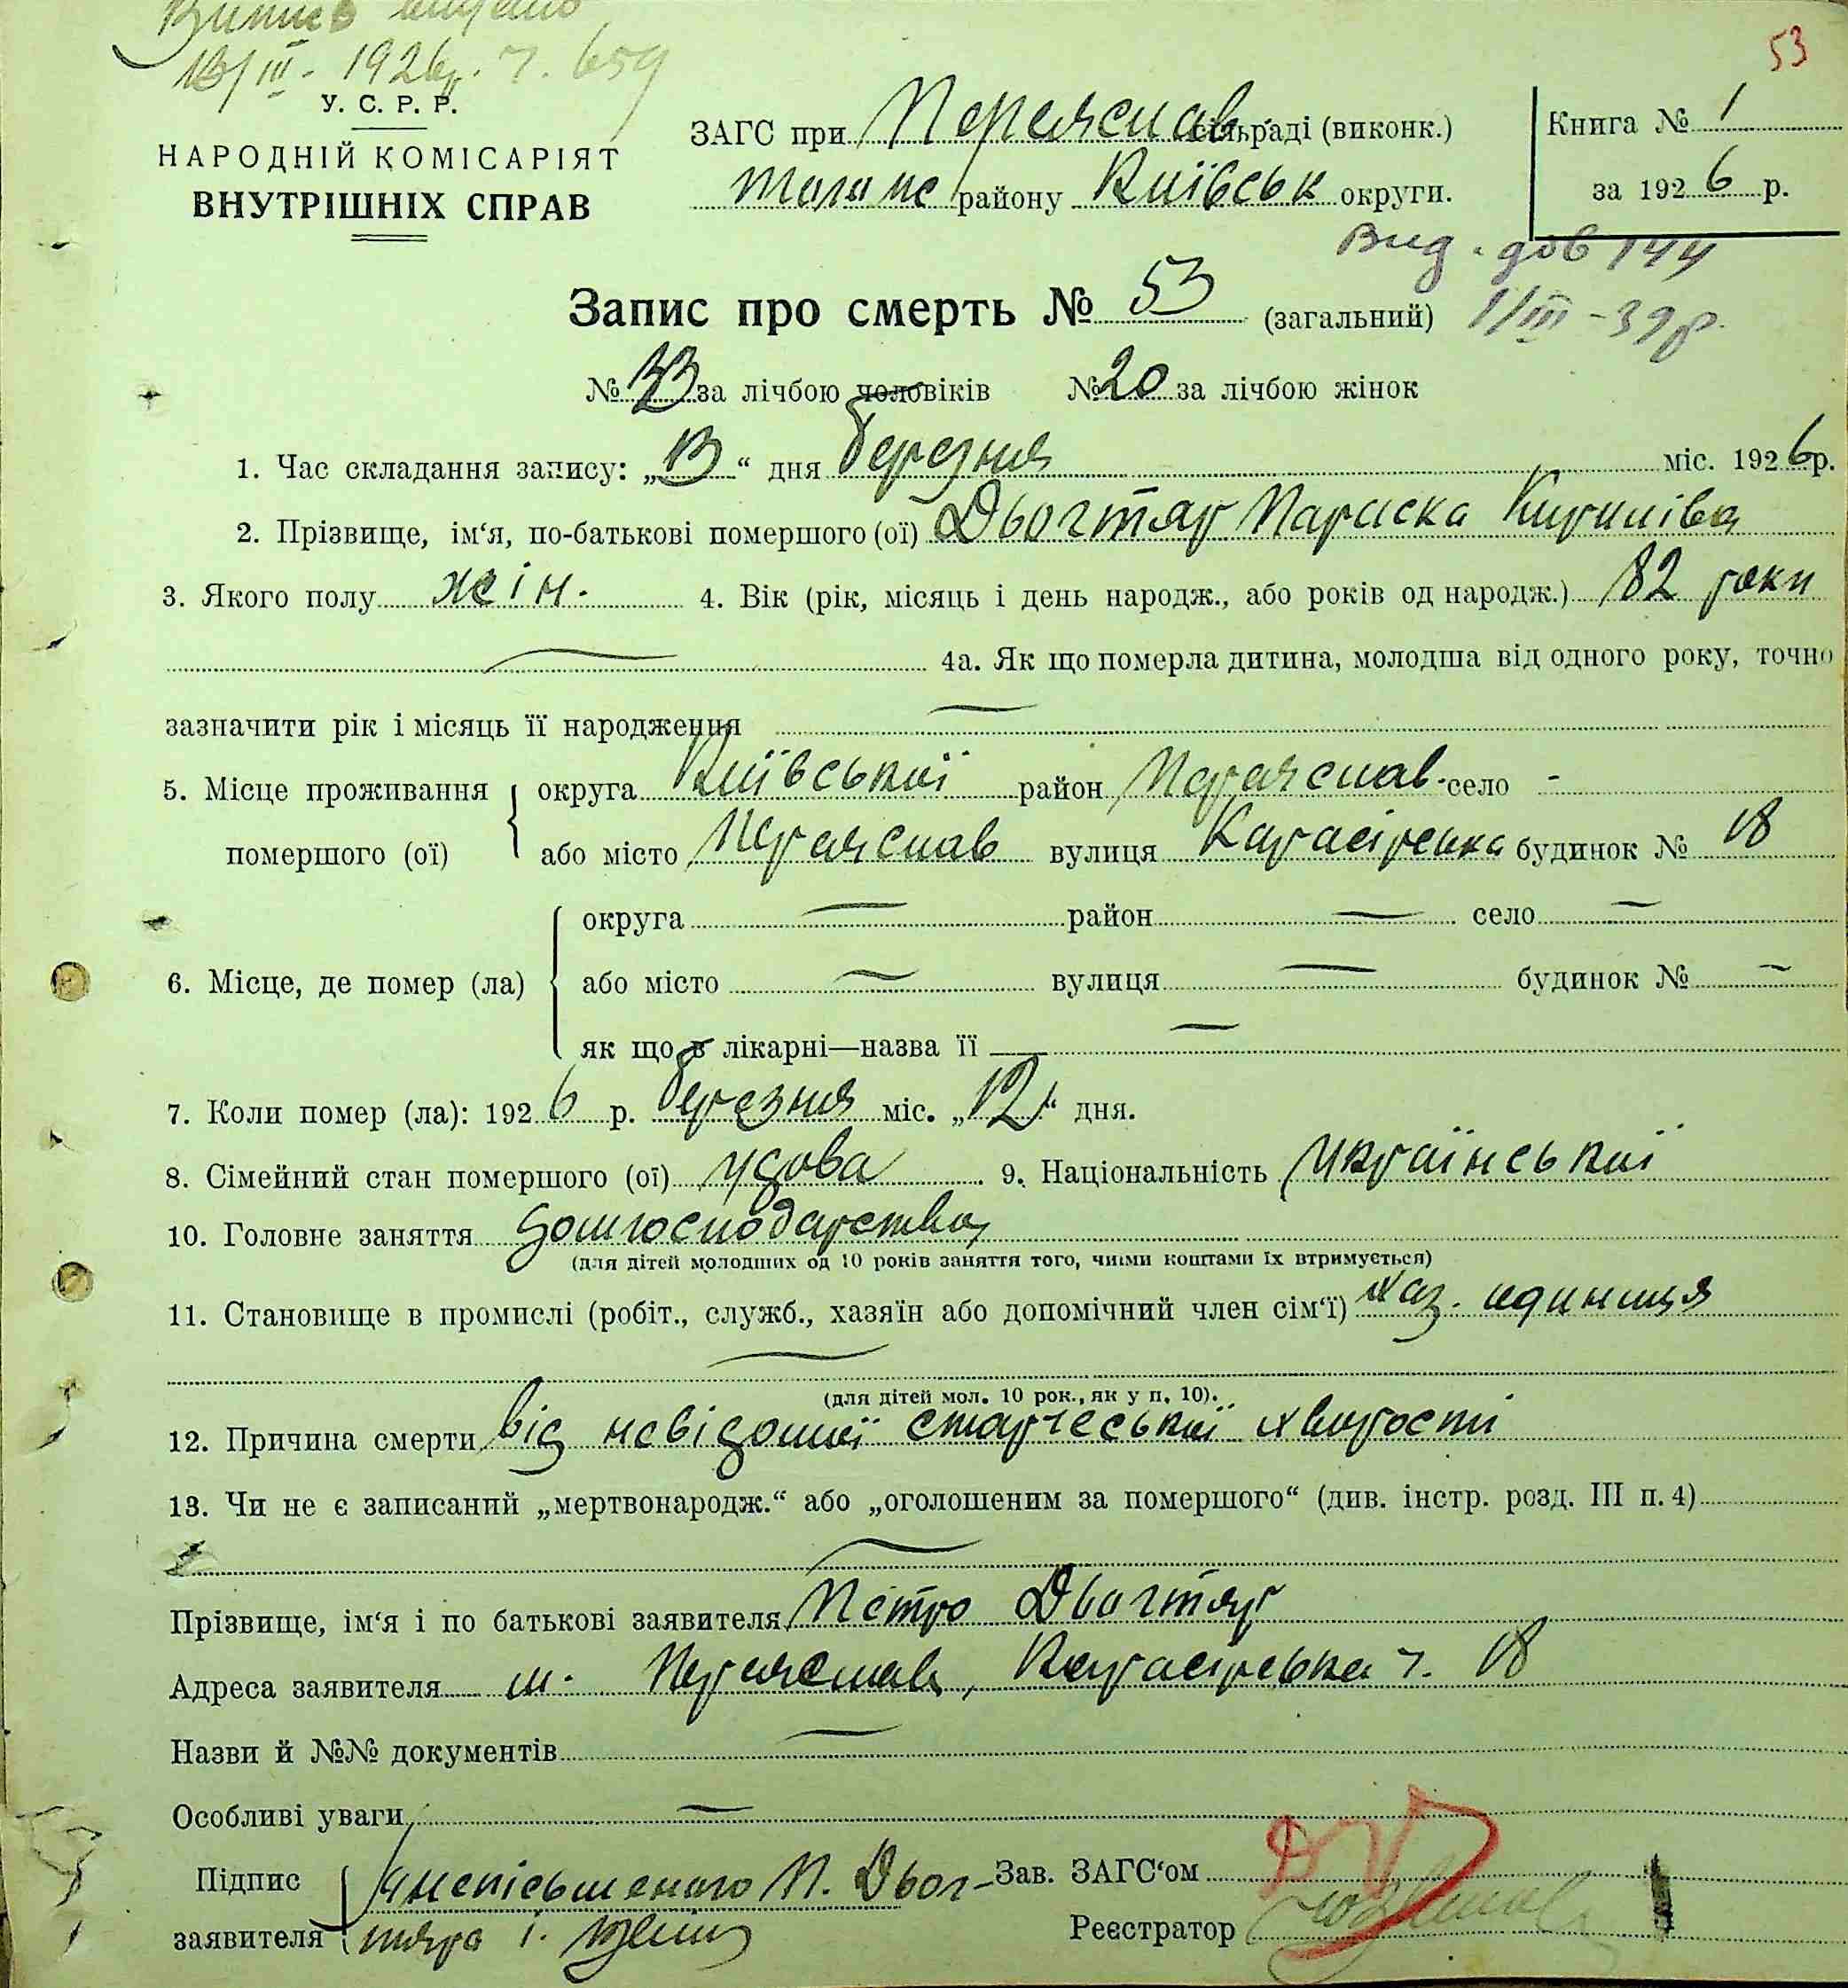 Випис видано
13/III - 1926р. ч. 659
53
У. С. Р. Р.
НАРОДНІЙ КОМІСАРІЯТ
ВНУТРІШНІХ СПРАВ
ЗАГС при Переяслав. сільраді (виконк.)
району Київськ округи.
Книга № 1
за 1926 р.
Вид. дов 144
1/III - 39р.
Запис про смерть № 53 (загальний)
№ 33 за лічбою чоловіків № 20 за лічбою жінок
1. Час складання запису: „13“ дня березня міс. 1926 р.
2. Прізвище, ім‘я, по-батькові помершого (ої) Дьогтяр Параска Кирилівна
3. Якого полу жін. 4. Вік (рік, місяць і день народж., або років од народж.) 82 роки
4а. Як що померла дитина, молодша від одного року, точно
зазначити рік і місяць її народження —
5. Місце проживання помершого (ої) округа Київської район Переяслав. село -
або місто Переяслав вулиця будинок № 18
6. Місце, де помер (ла) округа — район — село —
або місто — вулиця — будинок № —
як що в лікарні—назва її —
7. Коли помер (ла): 1926 р. березня міс. „12“ дня.
8. Сімейний стан помершого (ої) удова. 9. Національність української
10. Головне заняття домгосподарство
(для дітей молодших од 10 років заняття того, чиїми коштами їх втримується)
11. Становище в промислі (робіт., служб., хазяїн або допомічний член сім‘ї) хаз. одиниця
(для дітей мол. 10 рок., як у п. 10).
12. Причина смерти від невідомої старческої хворости
13. Чи не є записаний „мертвонародж.“ або „оголошеним за помершого“ (див. інстр. розд. III п. 4)
—
Прізвище, ім‘я і по батькові заявителя Петро Дьогтяр
Адреса заявителя м. Переяслав, ч. 18
Назви й №№ документів —
Особливі уваги —
Підпис заявителя П. Дьог-
тяра і.
Зав. ЗАГС‘ом
Реєстратор